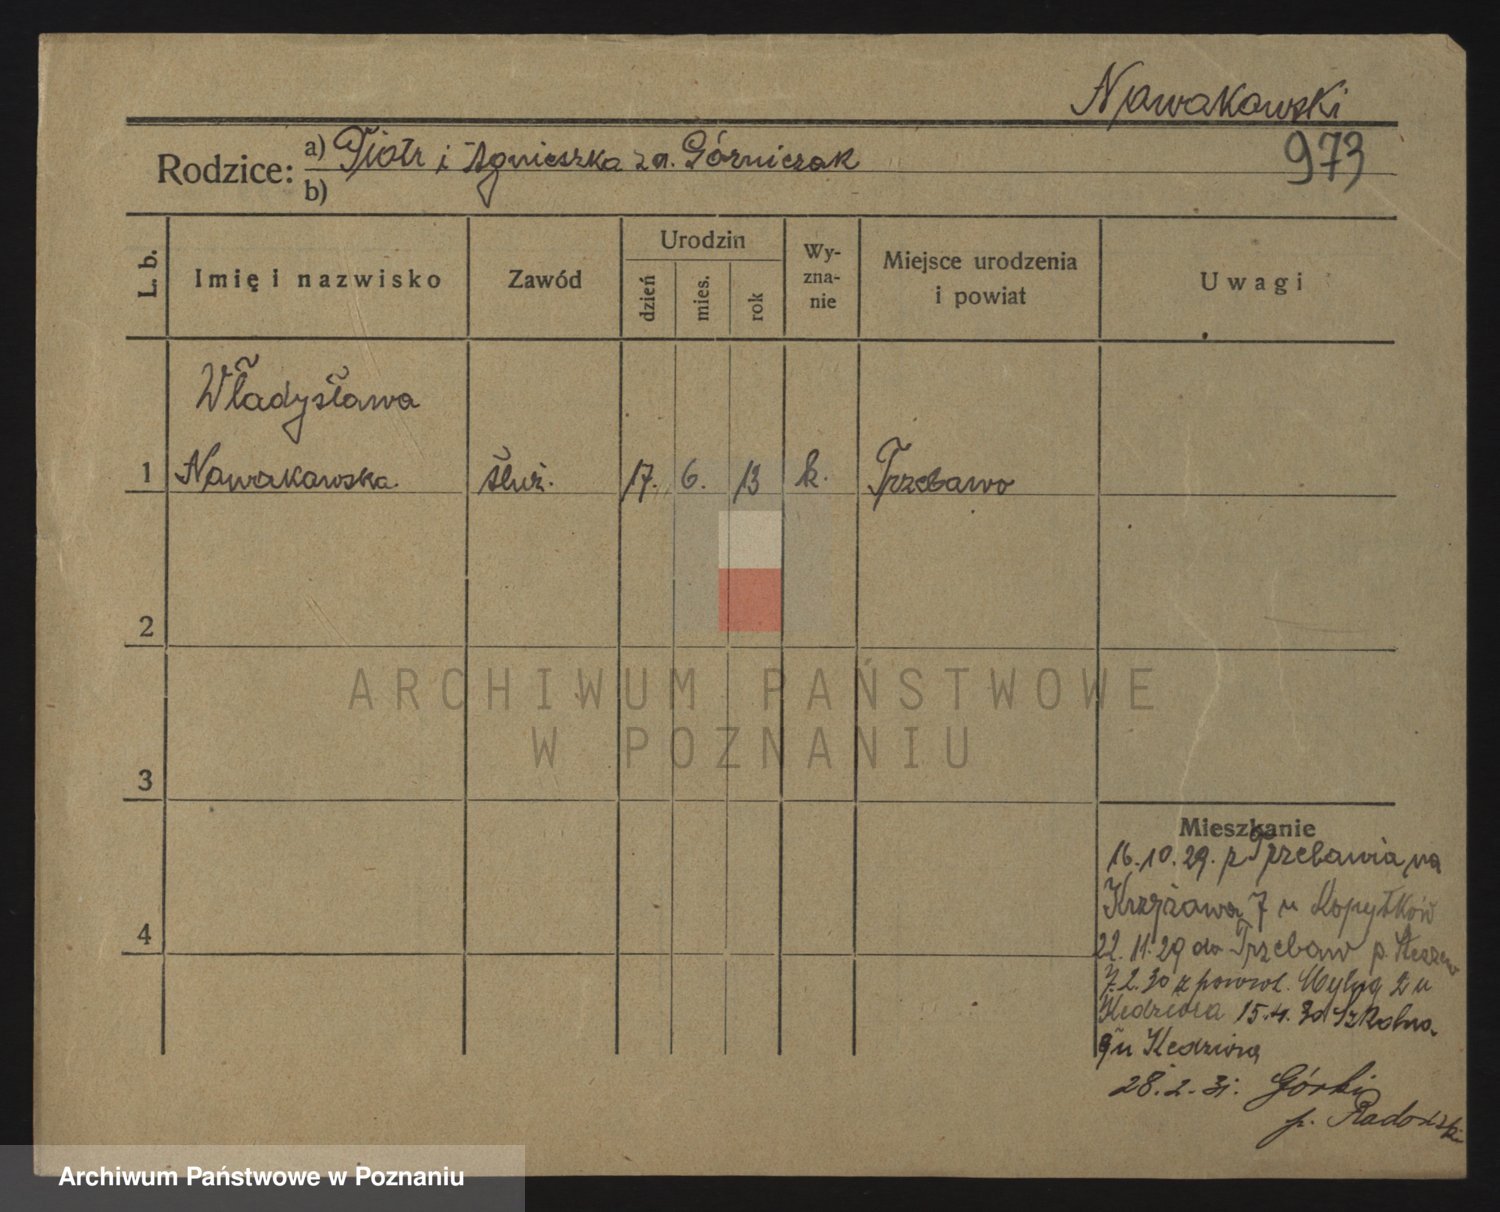 Nowakowski
973
Rodzice: a) Piotr i Agnieszka z d. Górniczak
b)
L. b.
Imię i nazwisko
Zawód
Urodzin
dzień
mies.
rok
Wy-
zna-
nie
Miejsce urodzenia
i powiat
Uwagi
Władysława
1 Nowakowska służ. 17. 6. 13 k. Trzebawo
2
3
4
ARCHIWUM PAŃSTWOWE
W POZNANIU
Mieszkanie
16.10.29. z Trzebawia na
Krzyżową 7 u Kopytków
22.11.29 do Trzebaw p.
7.2.30 z powrot. 2 u
Kędziora 15.4.30 Szkolna
9 u Kędziora
28.2.31. Górki
p.
Archiwum Państwowe w Poznaniu